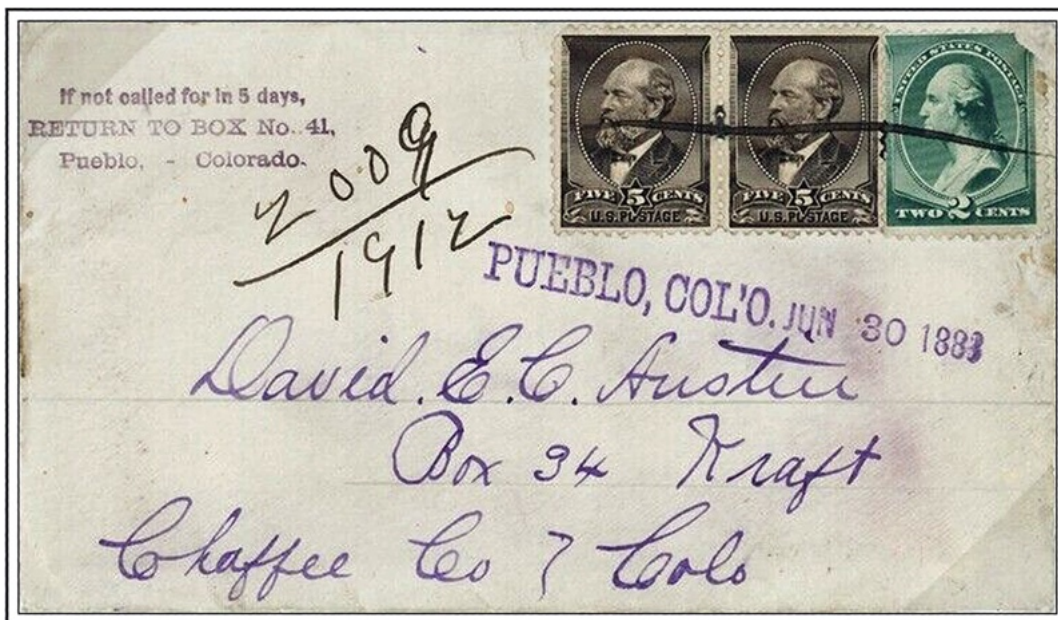 If not called for in 5 days,
RETURN TO BOX No. 41,
Pueblo, - Colorado.
2009
1912
UNITED STATES POSTAGE
FIVE 5 CENTS
U.S. POSTAGE
FIVE 5 CENTS
U.S. POSTAGE
TWO 2 CENTS
PUEBLO, COL'O. JUN 30 1883
David. E. C. Austin
Box 34 Kraft
Chaffee Co Colo